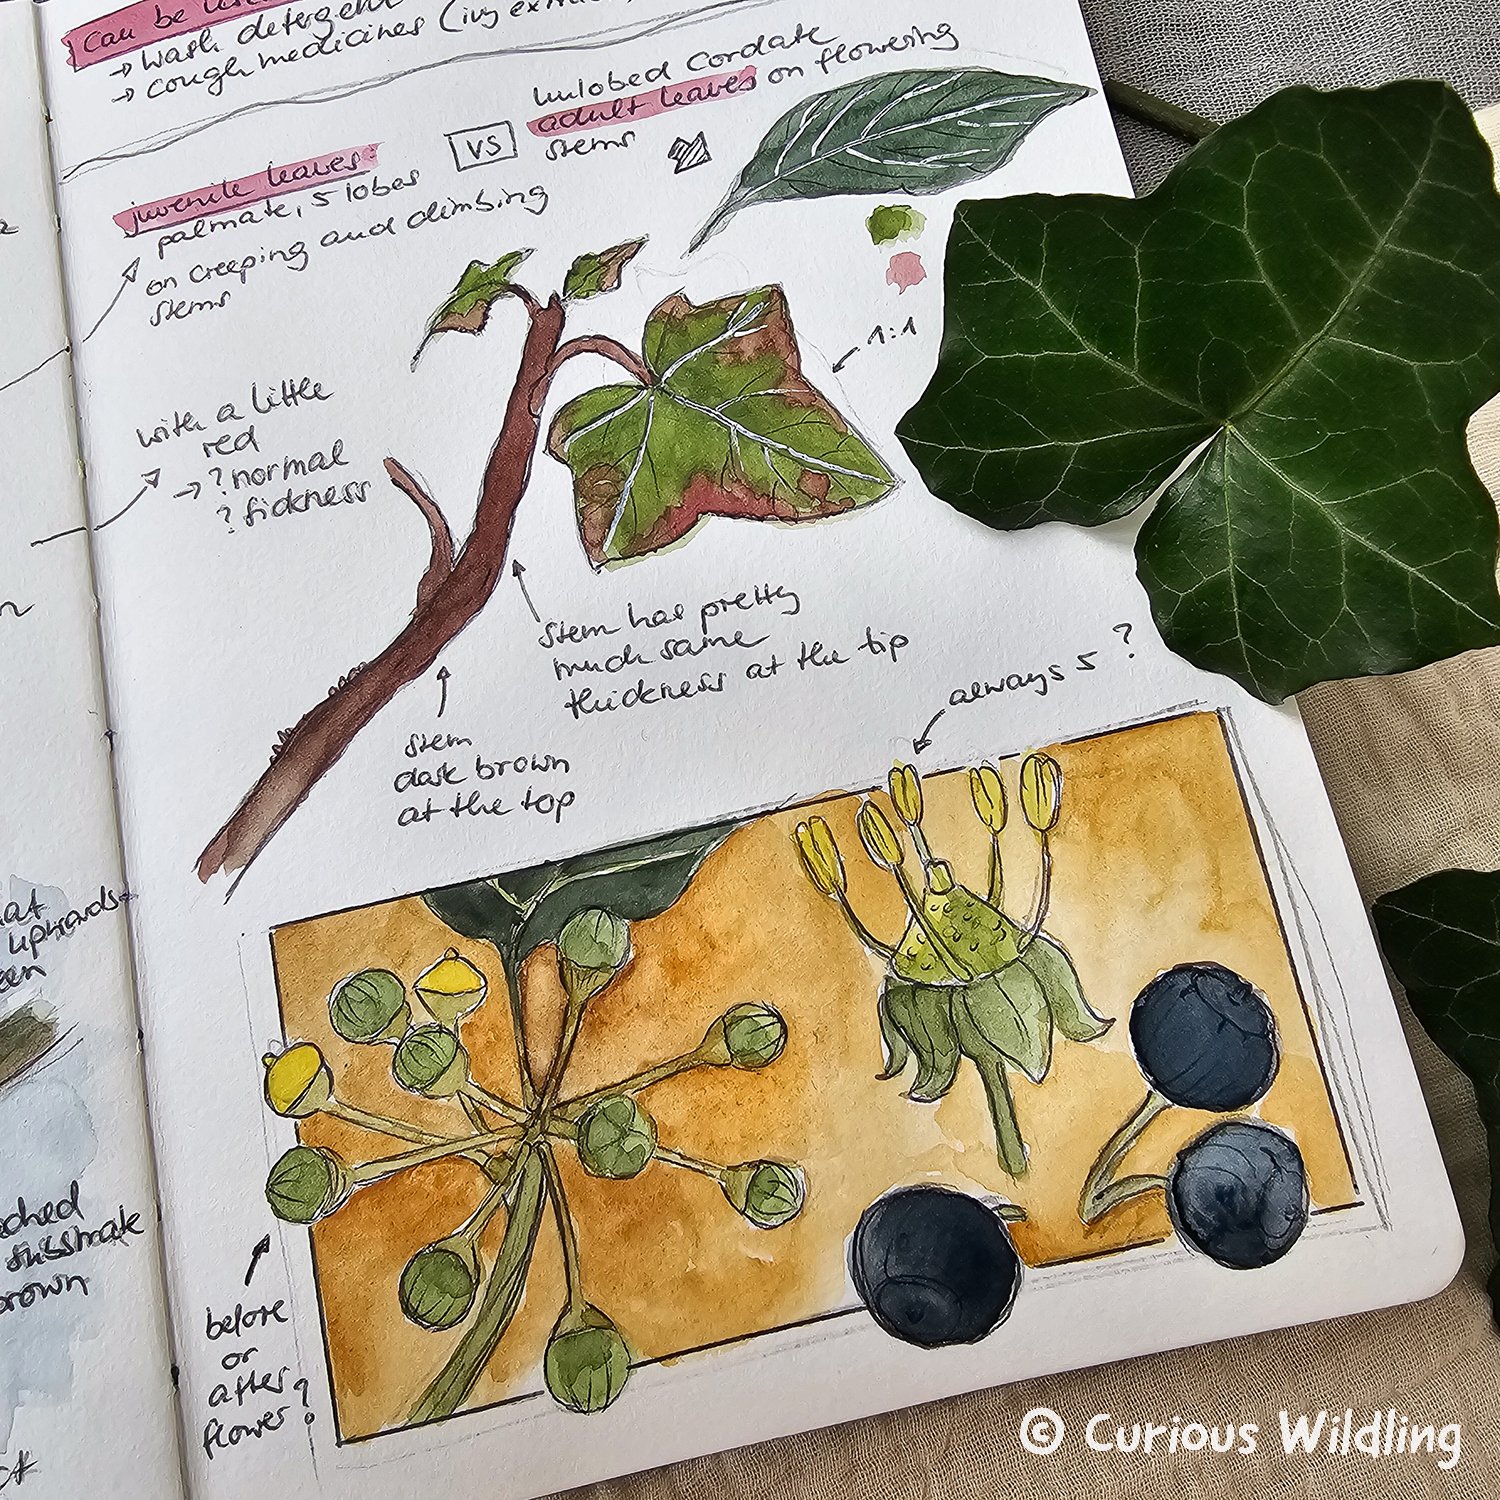 can be
→ wash detergent
→ cough medicines (ivy
juvenile leaves:
palmate, 5 lobes
on creeping and climbing
stems
VS
unlobed cordate
adult leaves on flowering
stems
1:1
with a little
red
→ ? normal
? sickness
stem has pretty
much same
thickness at the tip
stem
dark brown
at the top
always 5 ?
before
or
after
flower?
at
upwards
substrate
brown
© Curious Wildling